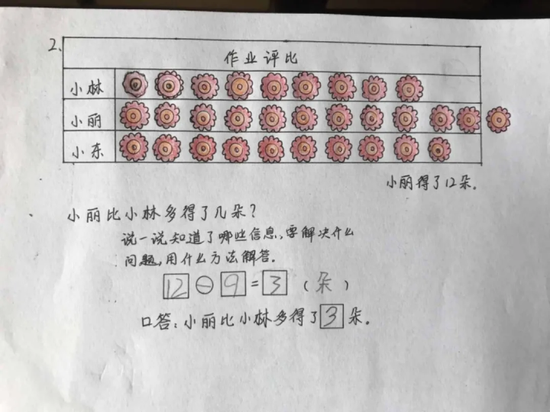 2.
作业评比
小林
小丽
小东
小丽得了12朵.
小丽比小林多得了几朵?
说一说知道了哪些信息,要解决什么
问题,用什么方法解答.
12-9=3(朵)
口答:小丽比小林多得了3朵.